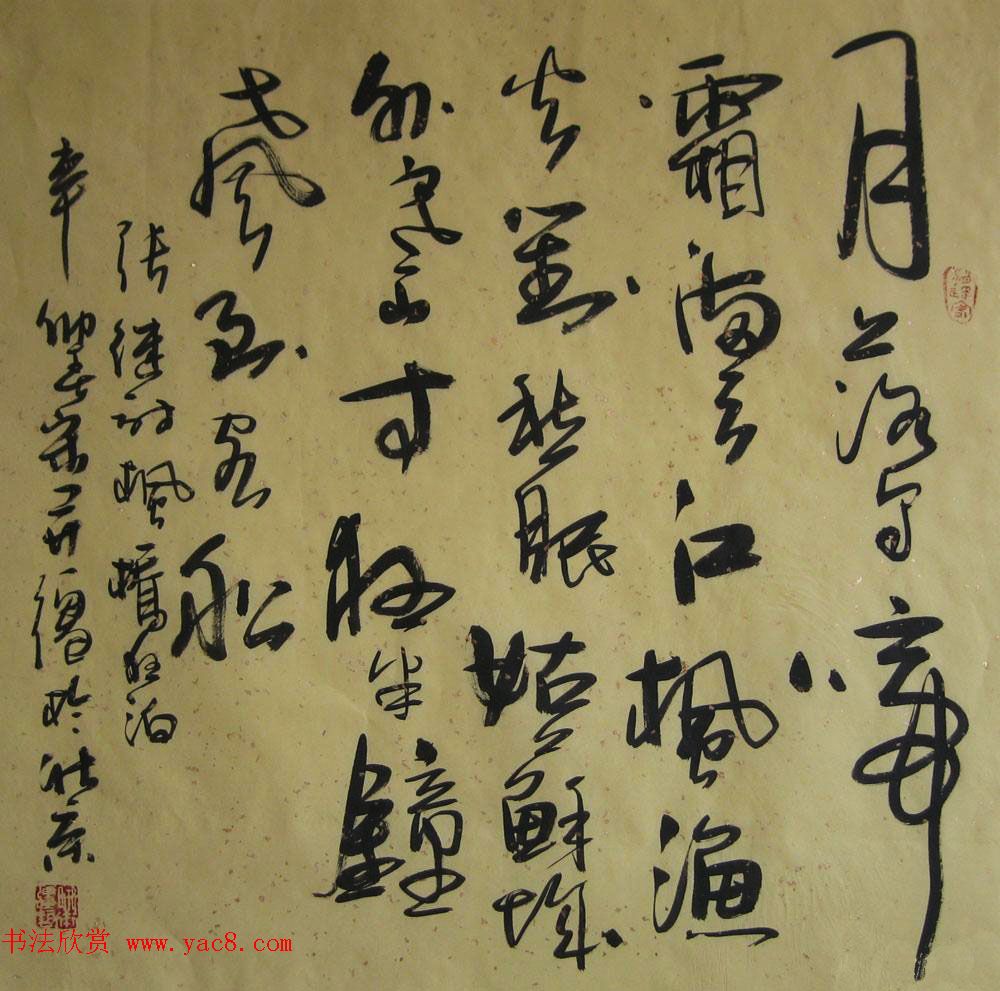 月落乌啼
霜满天江枫渔
火对愁眠姑蘇城
外寒山寺夜半鐘
聲到客船
张继诗枫橋夜泊
辛卯春宋於京
书法欣赏 www.yac8.com